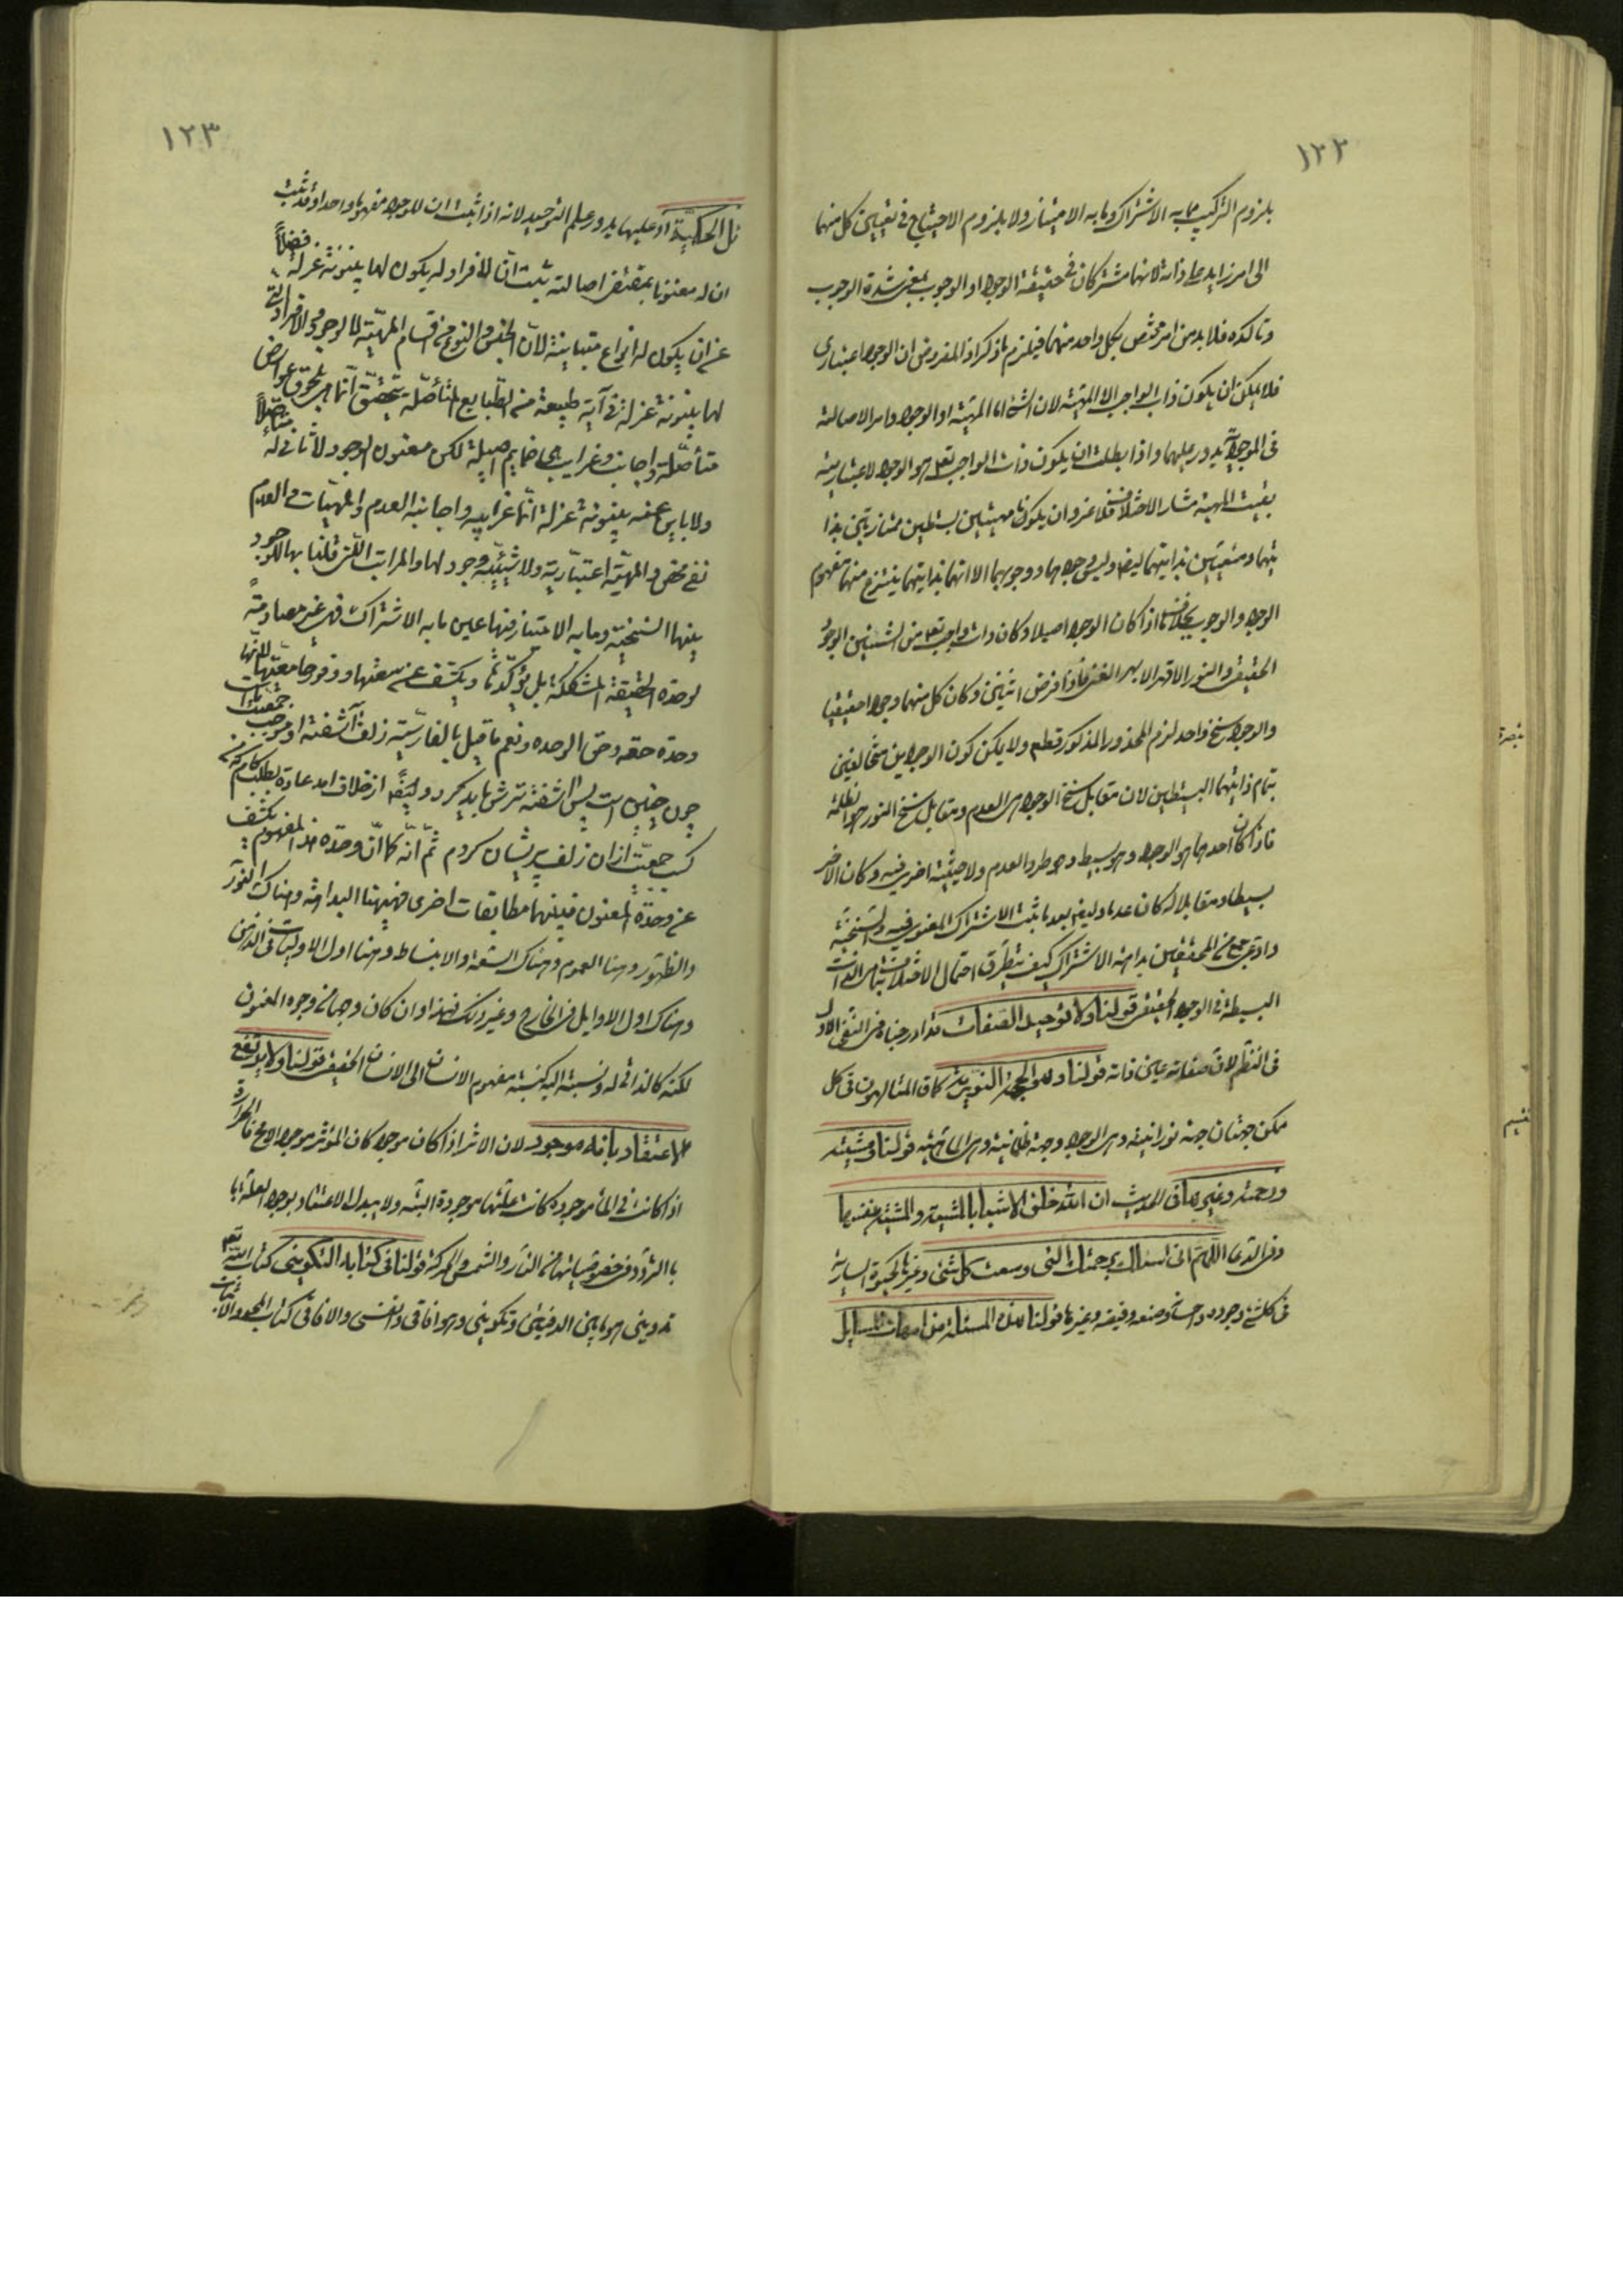 ١٢٢
يلزم التركيب مما به الاشتراك وما به الامتياز ولا يلزم الاحتياج فى تعيين كل منهما
الى امر زايد على ذاته لانهما مشتركان فى حقيقة الوجود او الوجوب بمعنى شدة الوجوب
وتاكده فلا بد من امر مختص بكل واحد منهما فيلزم ما ذكر اذ المفروض ان الوجود اعتبارى
فلا يمكن ان يكون ذات الواجب الا المهية لان الشئ اما المهية او الوجود وامر الاصالة
فى الموجودية يدور عليهما واذا بطلت ان يكون ذات الواجب تعالى هو الوجود لاعتباريته
بقيت المهية مثار الاختلاف فلا غرو ان يكون مهيتين بسيطتين ممتازتين بذا
تيهما ومتعينين بذاتيهما ليضا وليس وجودهما ووجوبهما الا انهما بذاتيهما ينتزع منهما مفهوم
الوجود والوجوب بخلاف ما اذا كان الوجود اصيلا وكان ذات واجب تعالى من الشيئين الوجود
الحقيقى والنور الاقهر الابهر الغنى فاذا فرض اثنين وكان كل منهما وجودا حقيقيا
والوجود سنخ واحد لزم المحذور المذكور قطع ولا يمكن كون الوجودين متخالفين
بتمام ذاتيهما البسيطتين لان مقابل سنخ الوجود هى العدم ومقابل سنخ النور هو الظلمة
فاذا كان احدهما هو الوجود وهو بسيط وهو طرد العدم ولا حيثية اخرى فيه وكان الاخر
بسيطا ومقابلا له كان عدما وليضا بعد ما ثبت الاشتراك المعنوى فيه والسنخية
وادعى جمع من المحققين بداهة الاشتراك كيف يتطرق احتمال الاختلاف بتمام الذات
البسيطة فى الوجود الحقيقى قولنا ولا توحيد الصفات قد ادرجناه فى الشق الاول
فى النظم لان صفاته عين ذاته قولنا وهى الجهة النورية كما قال المتالهون فى كل
ممكن جهتان جهة نورانية وهى الوجود وجهة ظلمانية وهى الماهية قولنا ومشيته
ورحمته وغيرها فى الحديث ان الله خلق الاشياء بالمشية والمشية بنفسها
وفى الدعا اللهم انى اسئلك برحمتك التى وسعت كل شئ وغيرها كالحيوة السارية
فى كل شئ وجوده واحسانه وصنعه وفيضه وغيرها قولنا هذه المسئلة من امهات المسايل
تبصرة
تقسيم
١٢٣
بل الحكمية او عليها يدور علم التوحيد لانه اذا ثبت ان للوجود مفهوما واحدا وقد ثبت
ان له معنونا بمقتضى اصالته ثبت ان لا افراد له يكون لها بينونة عزلة فضلا
عن ان يكون له انواع متباينة لان الجنس والنوع من اقسام المهية لا الوجود والافراد التى
لها بينونة عزلة فى اية طبيعة من الطبايع المتاصلة يتحقق انما هى بلحوق عوارض
متاصلة واجانب وغرايب هى ضمايم اصيلة لكن معنون الوجود لا ثانى له متاصلا
ولا باين عنه بينونة عزلة انما غرايبه واجانبه العدم والمهيات والعدم
نفى محض والمهية اعتبارية ولا شيئية وجود لها والمراتب التى قلنا بها للوجود
بينها السنخية وما به الامتياز فيها عين ما به الاشتراك فهى غير مصادمة
لوحدة الحقيقة المشككة بل يؤكدها ويكشف عن سعتها ووفور جامعيتها للانها
وحدة حقه وحق الوحده ونعم ما قيل بالفارسية زلف آشفته او موجب جمعيت ماست
چون چنين است پس آشفته ترش بايد كرد وليضا از خلاف امد عادت بطلب كام كه من
كسب جمعيت از ان زلف پريشان كردم ثم انه كما ان وحدة هذا المفهوم تكشف
عن وحدة المعنون فبينهما مطابقات اخرى فههنا البداهة وهناك النور
والظهور وهنا العموم وهناك السعة والانبساط وهنا اول الاوليات فى الذهن
وهناك اول الاوايل فى الخارج وغير ذلك فهذا وان كان وجها من وجوه المعنون
لكنه كالذاتى له ونسبته اليه كنسبة مفهوم الانسان الى الانسان الحقيقى قولنا ولا يرتفع
الاعتقاد بانه موجود لان الاثر اذا كان موجودا كان المؤثر موجودا الاخ فالحرارة
اذا كانت فى الماء موجودة كانت علتها موجودة البتة ولا يبدل الاعتقاد بوجود العلة با
با التردد فى خصوصياتها من النار والشمس والحركة قولنا فى كتابه التكوينى كتاب الله تعالى
تدوينى هو ما بين الدفتين وتكوينى وهو افاقى وانفسى والافاقى كتاب المحو والاثبات